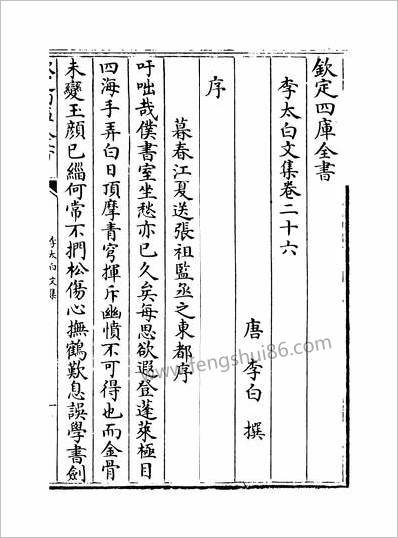 欽定四庫全書
李太白文集卷二十六
唐 李白 撰
序
暮春江夏送張祖監丞之東都序
吁咄哉僕書室坐愁亦已久矣每思欲遐登蓬萊極目
四海手弄白日頂摩青穹揮斥幽憤不可得也而金骨
未變玉顔已緇何常不捫松傷心撫鶴歎息誤學書劍
李太白文集
www.fengshui86.com